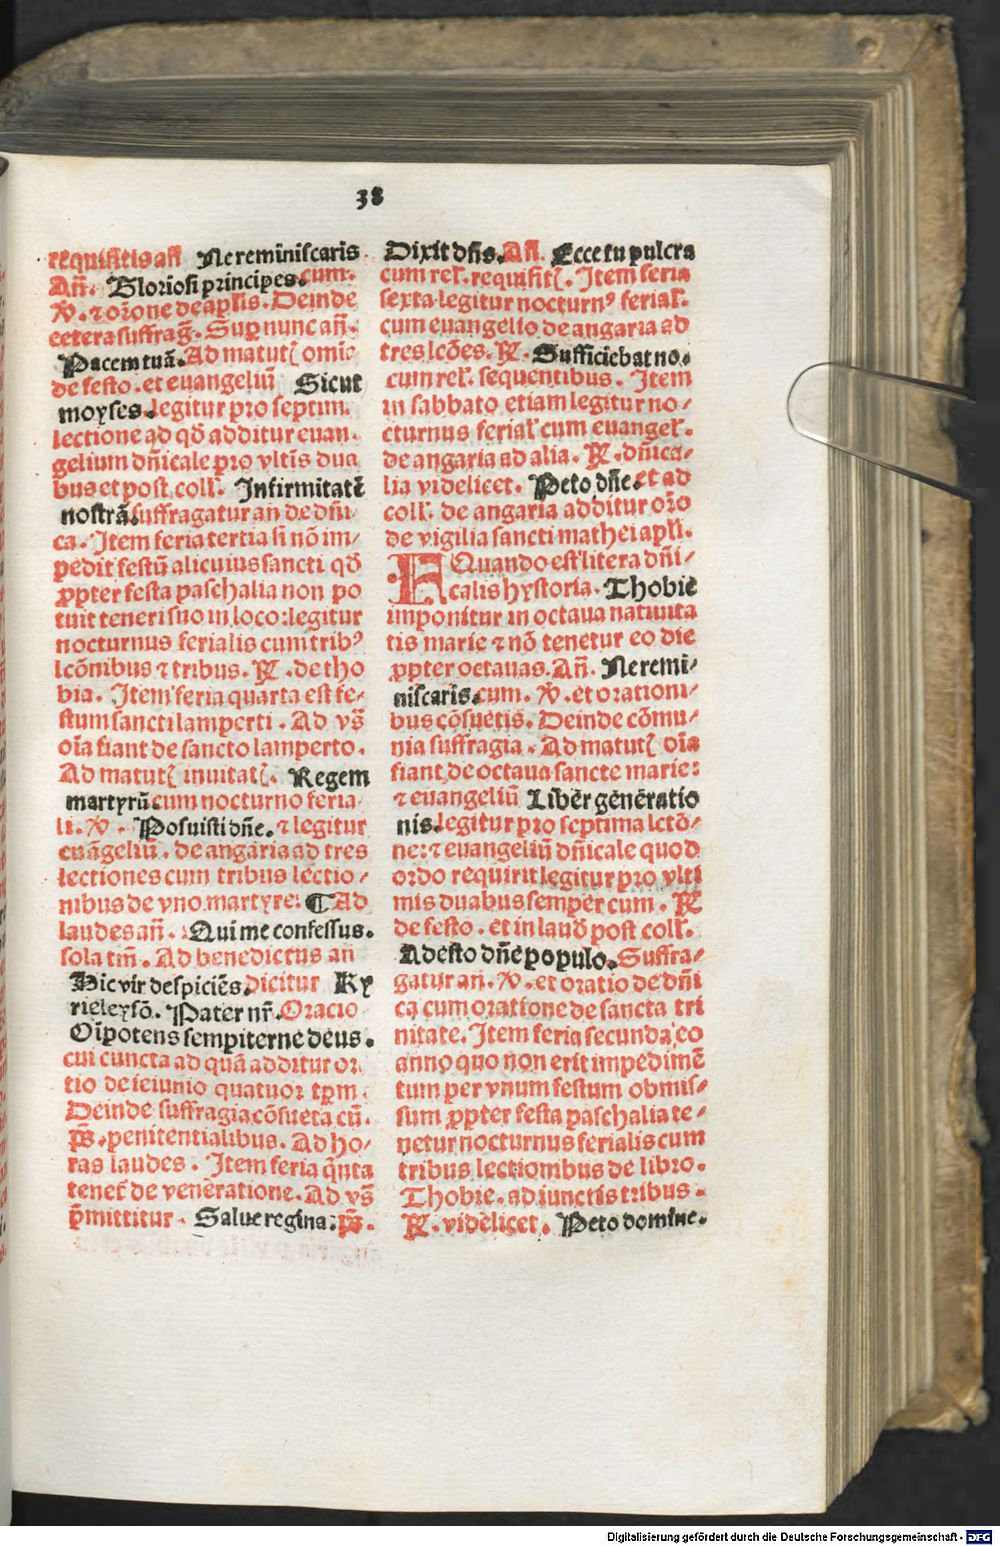 38
requisitis añ Ne reminiscaris
Añ. Gloriosi principes. cum.
℣. ⁊ orōne de aplīs. Deinde
cetera suffrag̃. Suꝑ nunc añ.
Pacem tuā. Ad matut̃ omīa
de festo. et euangeliū Sicut
moyses. legitur pro septim.
lectione ad qđ additur euan.
gelium dñicale pro vltīs dua
bus et post coll̃. Infirmitatē
nostrā. suffragatur an de dñi
ca. Item feria tertia si nō im⸗
pedit festū alicuius sancti qđ
ꝓpter festa paschalia non po
tuit teneri suo in loco: legitur
nocturnus ferialis cum tribꝰ
lcōnibus ⁊ tribus. ℟. de tho
bia. Item feria quarta est fe⸗
stum sancti lamperti. Ad vs̄
oīa fiant de sancto lamperto.
Ad matut̃ inuitat̃. Regem
martyrū. cum nocturno feria⸗
li. ℣. Posuisti dñe. ⁊ legitur
euāgeliū. de angaria ad tres
lectiones cum tribus lectio⸗
nibus de vno martyre: ¶ Ad
laudes añ. Qui me confessus.
sola tm̄. Ad benedictus an
Hic vir despiciēs. dicitur Ky
rieleysō. Pater nr̄. Oracio
Oīpotens sempiterne deus.
cui cuncta ad quā additur or.
tio de ieiunio quatuor tꝑm.
Deinde suffragia cōsueta cū.
ps̄. penitentialibus. Ad ho⸗
ras laudes. Item feria q̄nta
tenet̃ de venēratione. Ad vs̄
p̄mittitur. Salue regina: ps̄.
Dixit dñs. Añ. Ecce tu pulcra
cum rel̃. requisit̃. Item feria
sexta legitur nocturnꝰ ferial̃.
cum euangelio de angaria ad
tres lcōes. ℟. Sufficiebat no.
cum rel̃. sequentibus. Item
in sabbato etiam legitur no⸗
cturnus ferial̃ cum euangel̃.
de angaria ad alia. ℟. dñica⸗
lia videlicet. Peto dñe. et ad
coll̃. de angaria additur orō
de vigilia sancti mathei apl̃i.
A Quando est litera dñi⸗
calis hystoria. Thobie
imponitur in octaua natiuita
tis marie ⁊ nō tenetur eo die
ꝓpter octauas. Añ. Ne remi⸗
niscaris. cum. ℣. et orationi⸗
bus cōsuetis. Deinde cōmu⸗
nia suffragia. Ad matut̃ oīa
fiant de octaua sancte marie:
⁊ euangeliū Liber generatio
nis. legitur pro septima lctō⸗
ne: ⁊ euangeliū dñicale quod
ordo requirit legitur pro vlti
mis duabus semper cum. ℟
de festo. et in laud̃ post coll̃.
Adesto dñe populo. Suffra⸗
gatur an. ℣. et oratio de dñi
ca cum oratione de sancta tri
nitate. Item feria secunda eo
anno quo non erit impedimē
tum per vnum festum obmis⸗
sum ꝓpter festa paschalia te⸗
netur nocturnus ferialis cum
tribus lectionibus de libro.
Thobie. adiunctis tribus.
℟. videlicet. Peto domine.
Digitalisierung gefördert durch die Deutsche Forschungsgemeinschaft - DFG